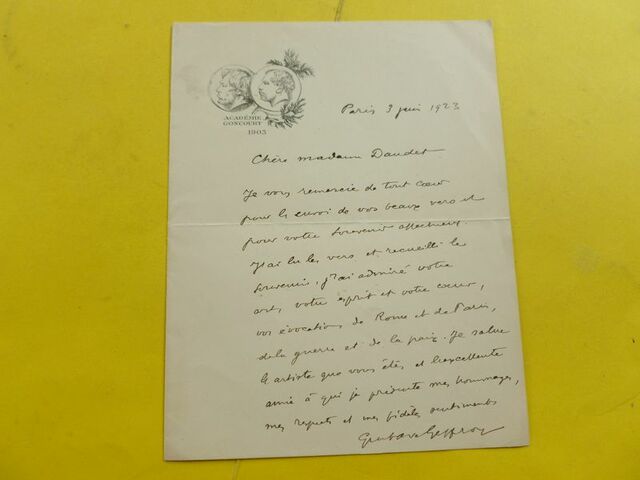 ACADÉMIE
GONCOURT
1903
Paris 3 juin 1923
Chère madame Daudet
Je vous remercie de tout cœur
pour le envoi de vos beaux vers et
pour votre souvenir affectueux.
J'ai lu les vers et recueilli le
souvenir, j'ai admiré votre
art, votre esprit et votre cœur,
vos évocations de Rome et de Paris,
de la guerre et de la paix. Je salue
le artiste que vous êtes et l'excellente
amie à qui je présente mes hommages,
mes respects et mes fidèles sentiments
Gustave Geffroy